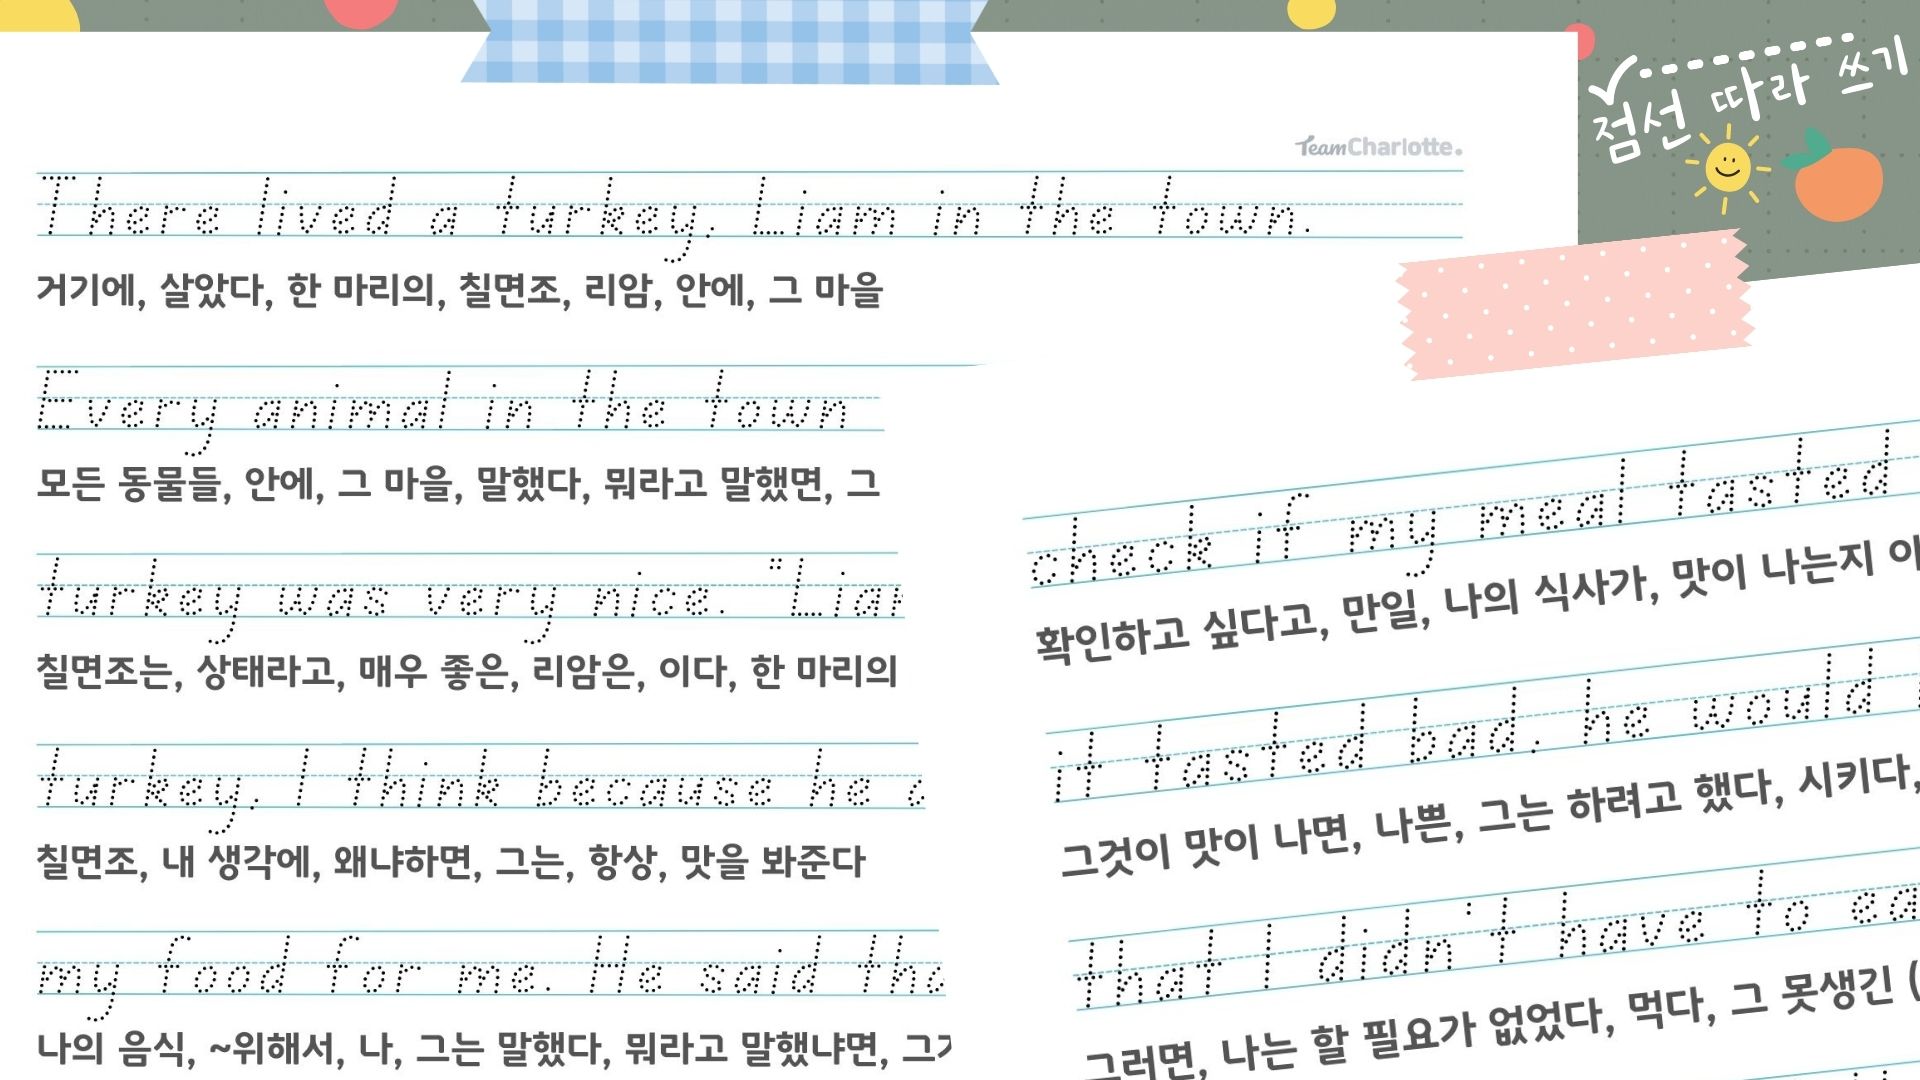 점선 따라 쓰기
TeamCharlotte.
There lived a turkey, Liam in the town.
거기에, 살았다, 한 마리의, 칠면조, 리암, 안에, 그 마을
Every animal in the town
모든 동물들, 안에, 그 마을, 말했다, 뭐라고 말했면, 그
turkey was very nice. "Liam
칠면조는, 상태라고, 매우 좋은, 리암은, 이다, 한 마리의
turkey, I think because he
칠면조, 내 생각에, 왜냐하면, 그는, 항상, 맛을 봐준다
my food for me. He said
나의 음식, ~위해서, 나, 그는 말했다, 뭐라고 말했냐면,
check if my meal tasted
확인하고 싶다고, 만일, 나의 식사가, 맛이 나는지
it tasted bad, he would
그것이 맛이 나면, 나쁜, 그는 하려고 했다, 시키다,
that I didn't have to
그러면, 나는 할 필요가 없었다, 먹다, 그 못생긴 (